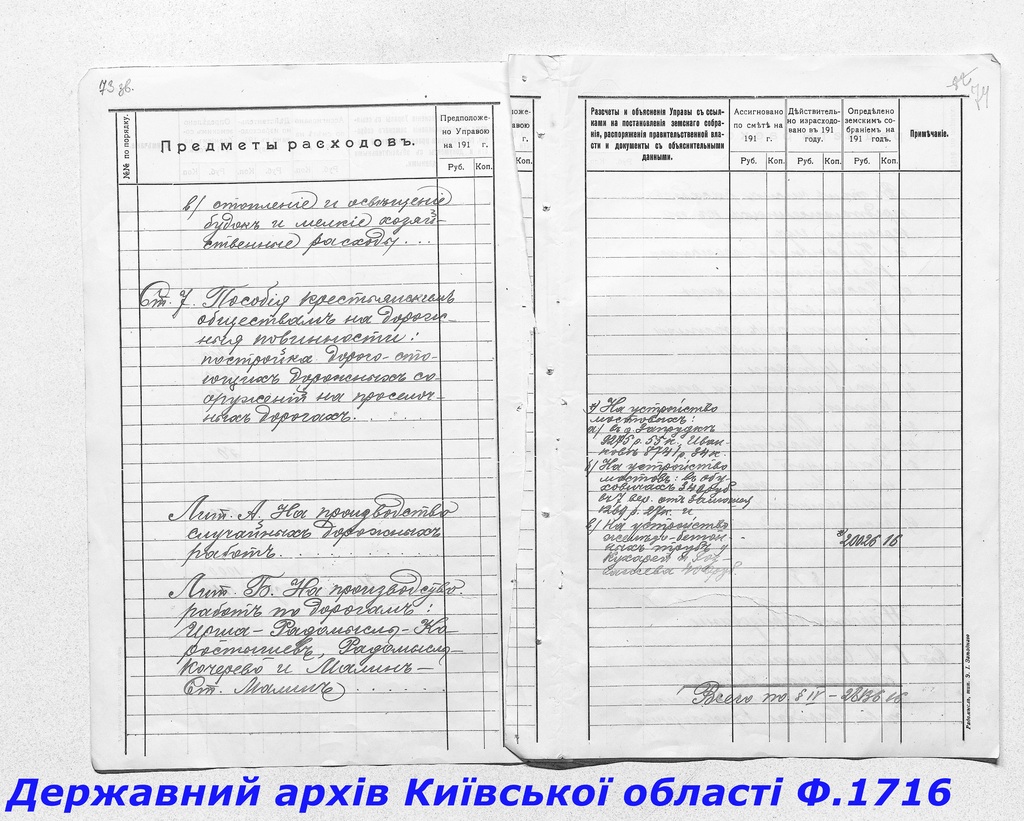 73 зв.
№№ по порядку.
Предметы расходовъ.
Предположе-
но Управою
на 191 г.
Руб. Коп.
в/ отопленіе и освѣщеніе
будокъ и мелкіе хозяй-
ственные расходы . . .
Ст. 7. Пособія крестьянскимъ
обществамъ на дорож-
ныя повинности:
постройка дорого-сто-
ющихъ дорожныхъ со-
оруженій на просёлоч-
ныхъ дорогахъ. . . . .
Лит. А. На производство
случайныхъ дорожныхъ
работъ. . . . . . . . . .
Лит. Б. На производство
работъ по дорогамъ:
Ирша – Радомысль – Ко-
ростышевъ, Радомысль
Кочерево и Малинъ –
Ст. Малинъ . . . . . .
74
Разсчеты и объясненія Управы съ ссыл-
ками на постановленія земскаго собра-
нія, распоряженія правительственной вла-
сти и документы съ объяснительными
данными.
Ассигновано
по смѣтѣ на
191 г.
Руб. Коп.
Дѣйствитель-
но израсходо-
вано въ 191
году.
Руб. Коп.
Опредѣлено
земскимъ со-
браніемъ на
191 годъ.
Руб. Коп.
Примѣчаніе.
На устройство
мостовыхъ:
а/ въ д. Запрудкѣ
9275 р. 55 к. Иван-
ковѣ 8741 р. 34 к.
б/ На устройство
мостовъ: въ Обу-
ховичахъ 340 руб
въ 7 вер. отъ
1269 р. 27 к. и
в/ На устройство
желѣзо-бетон-
ныхъ трубъ у
Кухарей и Роз-
важева 400 руб.
20026 16
Всего по § IV – 28136 16
Радомысль, тип.
Державний архів Київської області Ф.1716